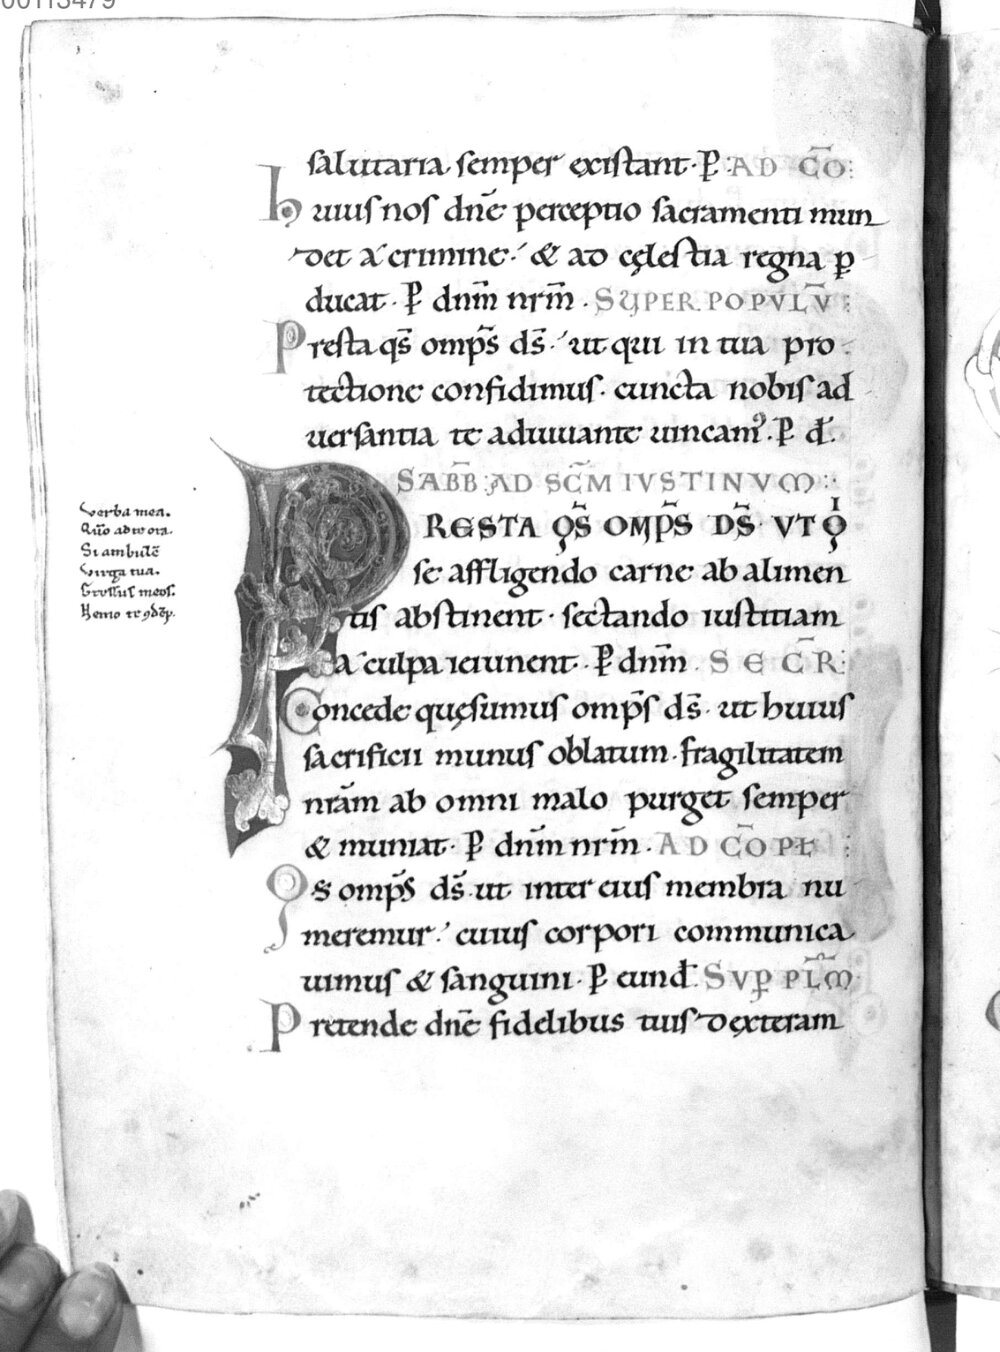 00113479
salutaria semper existant· P̄ ·AD CO̅:
huius nos dn̄e perceptio sacramenti mun
det a crimine·́ & ad cęlestia regna ꝑ
ducat· P̄ dnm̄ nrm̄· SUPER POPVLV̄:
Presta qs̄ omps̄ ds̄·́ ut qui in tua pro
tectione confidimus· cuncta nobis ad
uersantia te adiuuante uincam᷒· P̄ d.́
SABB̄ AD SC̄M IVSTINVM:·
PRESTA QS̄ OMPS̄ DS̄· VT QI
se affligendo carne ab alimen
tis abstinent· sectando iustitiam
a culpa ieiunent· P̄ dnm̄· SEC̄R:
Concede quęsumus omps̄ ds̄· ut huius
sacrificii munus oblatum· fragilitatem
nrām ab omni malo purget semper
& muniat· P̄ dnm̄ nrm̄· AD CO̅PL :
Qs omps̄ ds̄· ut inter eius membra nu
meremur·́ cuius corpori communica
uimus & sanguini· P̄ eund̄· SVꝑ PL̄M·
Pretende dn̄e fidelibus tuis dexteram
Verba mea.
Si ambulē
Virga tua.
Gressus meos.